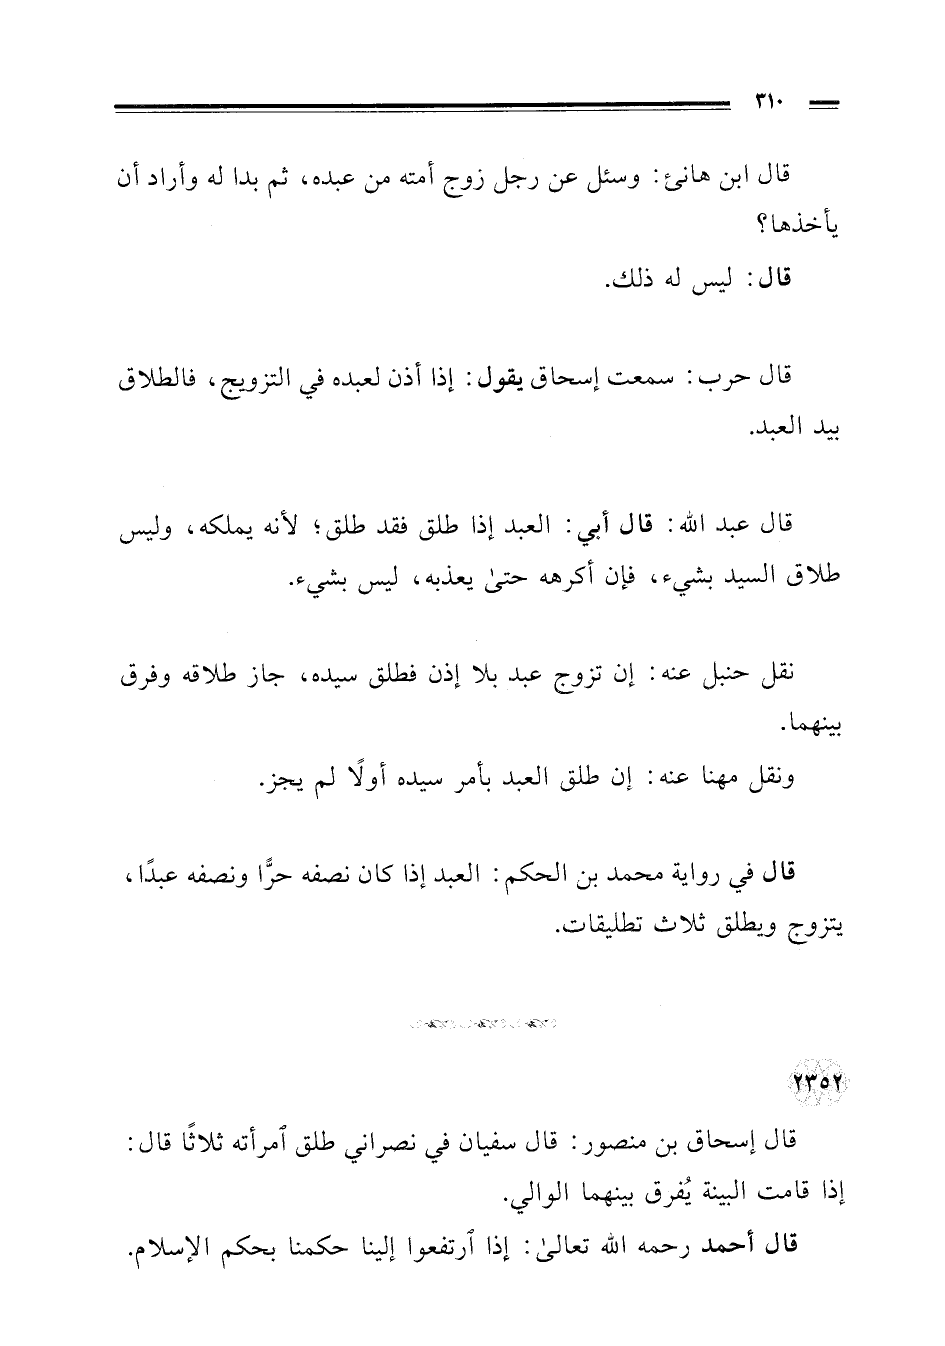 ٣١٠
قال ابن هانئ: وسئل عن رجل زوج أمته من عبده، ثم بدا له وأراد أن
يأخذها؟
قال: ليس له ذلك.
قال حرب: سمعت إسحاق يقول: إذا أذن لعبده في التزويج، فالطلاق
بيد العبد.
قال عبد الله: قال أبي: العبد إذا طلق فقد طلق؛ لأنه يملكه، وليس
طلاق السيد بشيء، فإن أكرهه حتىٰ يعذبه، ليس بشيء.
نقل حنبل عنه: إن تزوج عبد بلا إذن فطلق سيده، جاز طلاقه وفرق
بينهما.
ونقل مهنا عنه: إن طلق العبد بأمر سيده أولًا لم يجز.
قال في رواية محمد بن الحكم: العبد إذا كان نصفه حرًّا ونصفه عبدًا،
يتزوج ويطلق ثلاث تطليقات.
٢٣٥٢
قال إسحاق بن منصور: قال سفيان في نصراني طلق ٱمرأته ثلاثًا قال:
إذا قامت البينة يُفرق بينهما الوالي.
قال أحمد رحمه الله تعالىٰ: إذا ٱرتفعوا إلينا حكمنا بحكم الإسلام.